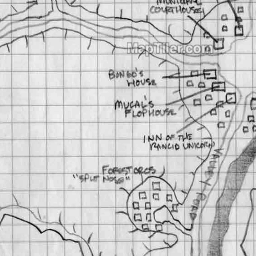 MUNICIPAL
COURTHOUSE
MapTiler.com
BONGO'S
HOUSE
MUGAL'S
FLOPHOUSE
INN OF THE
RANCID UNICORN
FOREST ORCS
"SPLIT NOSE"
VALLEY ROAD